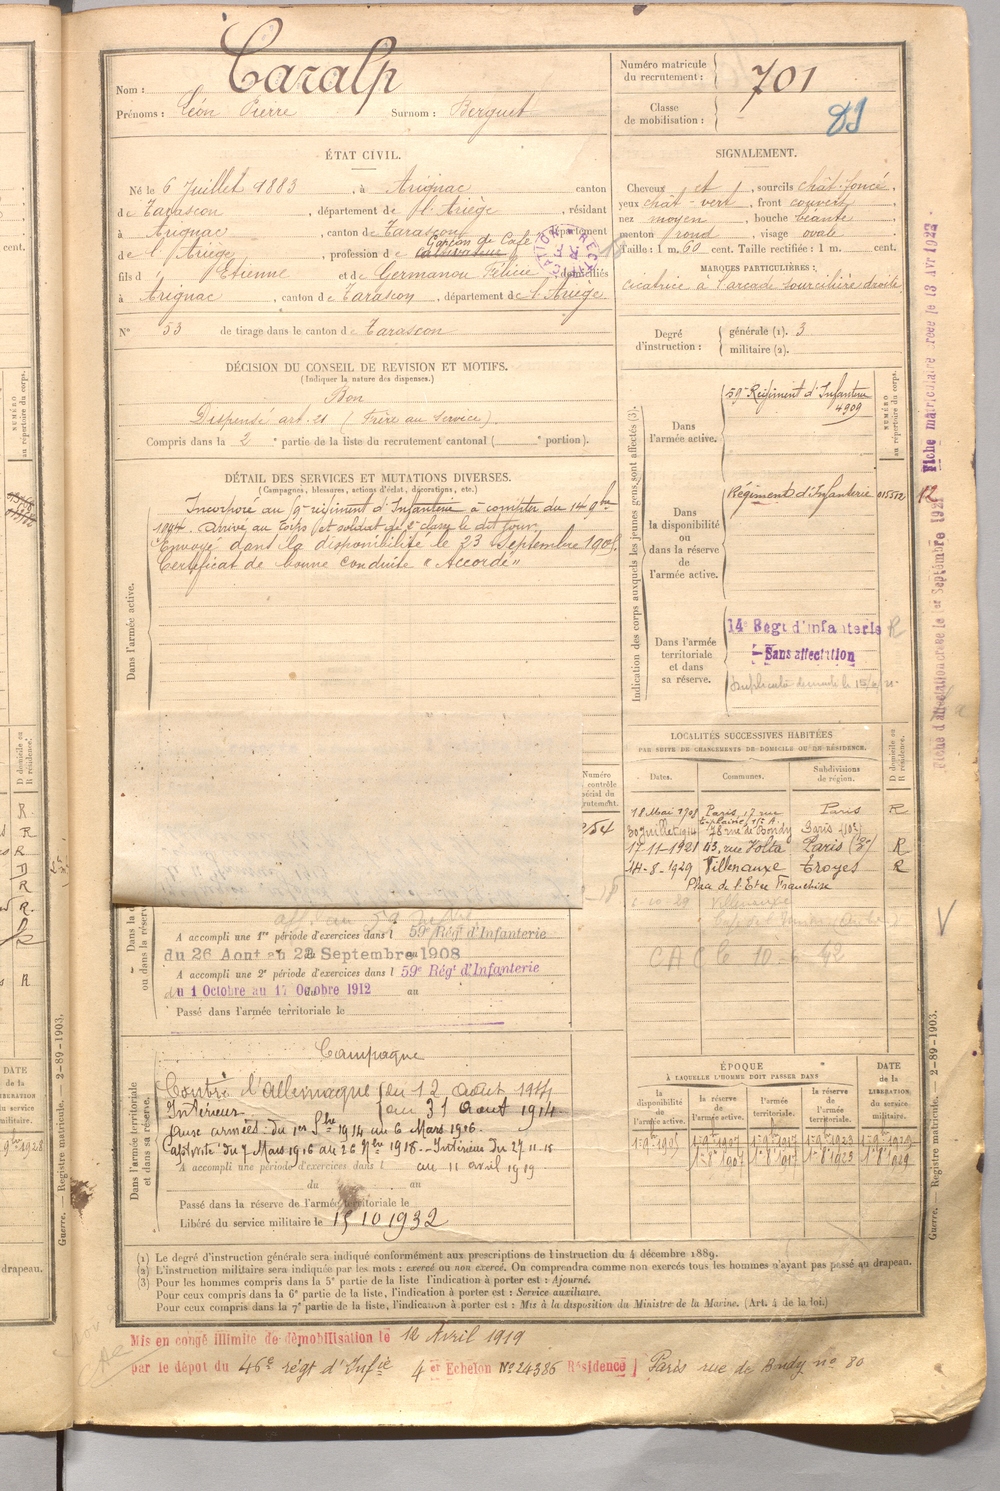 Nom : Caralp
Prénoms : Léon Pierre Surnom : Berguet
Numéro matricule du recrutement : 701
Classe de mobilisation :
ÉTAT CIVIL.
Né le 6 Juillet 1883, à Arignac canton
de Tarascon, département de l'Ariège, résidant
à Arignac, canton de Tarascon, département
Garçon de Café
de l'Ariège, profession de cultivateur
fils d' Etienne et de Germanou Félicie, domiciliés
à Arignac, canton de Tarascon, département de l'Ariège
N° 53 de tirage dans le canton de Tarascon
SIGNALEMENT.
Cheveux et, sourcils chât-foncé,
yeux chât-vert, front couvert,
nez moyen, bouche béante,
menton rond, visage ovale
Taille : 1 m. 60 cent. Taille rectifiée : 1 m. cent.
MARQUES PARTICULIÈRES :
cicatrice à l'arcade sourcilière droite
Degré d'instruction : générale (1). 3
militaire (2).
DÉCISION DU CONSEIL DE REVISION ET MOTIFS.
(Indiquer la nature des dispenses.)
Bon
Dispensé art. 21 (Frère au Service)
Compris dans la 2e partie de la liste du recrutement cantonal ( e portion).
DÉTAIL DES SERVICES ET MUTATIONS DIVERSES.
(Campagnes, blessures, actions d'éclat, décorations, etc.)
Dans l'armée active.
Incorporé au 59e régiment d'Infanterie à compter du 14 9bre
1904. Arrivé au corps et soldat de 2e classe le dit jour.
Envoyé dans la disponibilité le 23 Septembre 1905.
Certificat de bonne conduite "Accordé"
Indication des corps auxquels les jeunes gens sont affectés (3).
NUMÉRO au répertoire du corps.
Dans l'armée active.
59e Régiment d'Infanterie
4909
Dans la disponibilité ou dans la réserve de l'armée active.
Régiment d'Infanterie 015552
Dans l'armée territoriale et dans sa réserve.
14e Régt d'infanterie R
Sans affectation
LOCALITÉS SUCCESSIVES HABITÉES
PAR SUITE DE CHANGEMENTS DE DOMICILE OU DE RÉSIDENCE.
Dates. Communes. Subdivisions de région. D domicile ou R résidence.
18 Mai 1908 Paris, 17 rue Paris R
30 juillet 1914 78 rue de Bondy Paris (10e)
17-11-1921 43, rue Volta Paris (3e) R
14-8-1929 Villenauxe Troyes R
Place de l'Etre Franchise
CAC le 10-6-42
A accompli une 1re période d'exercices dans l 59e Régt d'Infanterie
du 26 Aout au 22 Septembre 1908
A accompli une 2e période d'exercices dans l 59e Régt d'Infanterie
du 1 Octobre au 17 Octobre 1912 au
Passé dans l'armée territoriale le
Dans l'armée territoriale et dans sa réserve.
Campagne
Contre l'Allemagne du 12 Août 1914
Intérieur au 31 Août 1914
aux armées du 1er 7bre 1914 au 6 Mars 1916.
Captivité du 7 Mars 1916 au 26 9bre 1918. - Intérieur du 27.11.18
A accompli une période d'exercices dans l au 11 avril 1919
du au
Passé dans la réserve de l'armée territoriale le
Libéré du service militaire le 15 10 1932
ÉPOQUE
À LAQUELLE L'HOMME DOIT PASSER DANS
la disponibilité de l'armée active. la réserve de l'armée active. l'armée territoriale. la réserve de l'armée territoriale. DATE de la LIBÉRATION du service militaire.
1er 9bre 1905 1er 9bre 1907 1er 9bre 1917 1er 9bre 1923 1er 9bre 1929
1er 8bre 1907 1er 8bre 1917 1er 8bre 1923 1er 8bre 1929
(1) Le degré d'instruction générale sera indiqué conformément aux prescriptions de l'instruction du 4 décembre 1889.
(2) L'instruction militaire sera indiquée par les mots : exercé ou non exercé. On comprendra comme non exercés tous les hommes n'ayant pas passé au drapeau.
(3) Pour les hommes compris dans la 5e partie de la liste l'indication à porter est : Ajourné.
Pour ceux compris dans la 6e partie de la liste, l'indication à porter est : Service auxiliaire.
Pour ceux compris dans la 7e partie de la liste, l'indication à porter est : Mis à la disposition du Ministre de la Marine. (Art. 4 de la loi.)
Mis en congé illimité de démobilisation le 12 Avril 1919
par le dépot du 46e régt d'Infie 4er Echelon No 24386 Résidence Paris rue de Bondy no 80
Guerre. — Registre matricule. — 2-89-1903.
Guerre. — Registre matricule. — 2-89-1903.